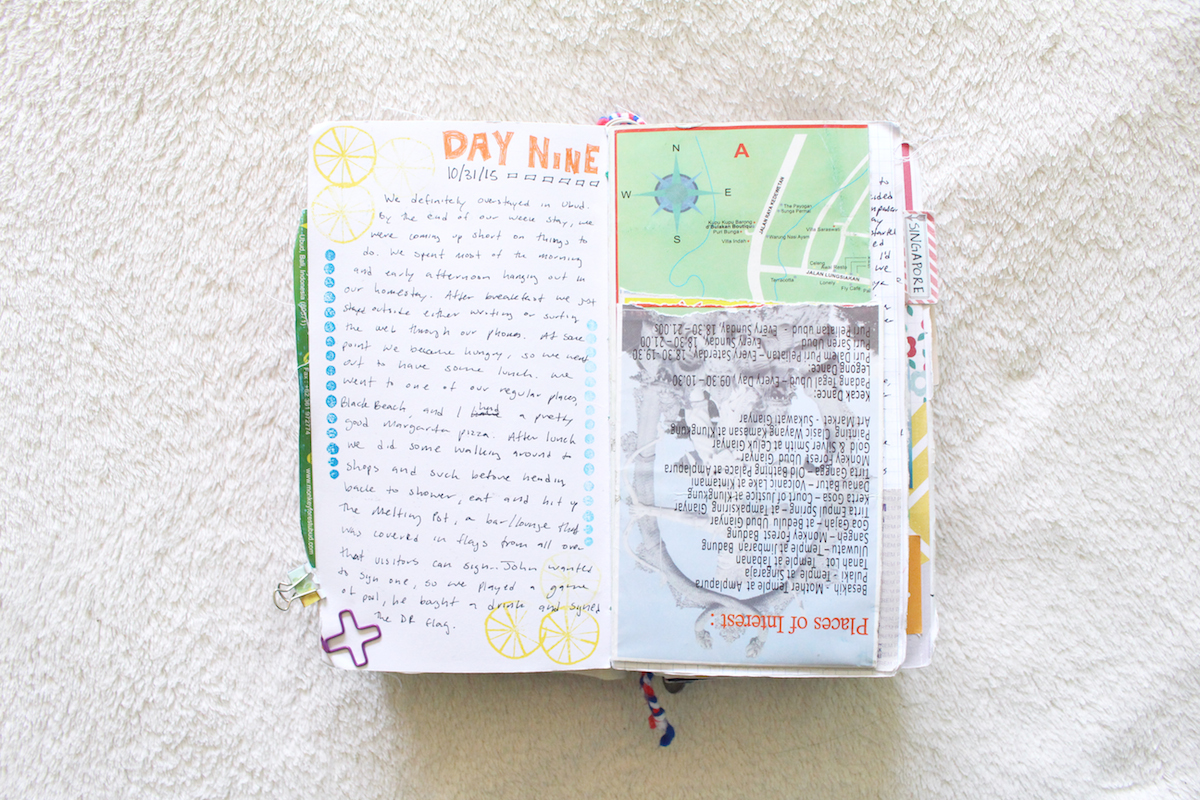 DAY NINE
10/31/15
We definitely overstayed in Ubud.
By the end of our week stay, we
were coming up short on things to
do. We spent most of the morning
and early afternoon hanging out in
our homestay. After breakfast we just
stayed outside either writing or surfing
the web through our phones. At some
point we became hungry, so we went
out to have some lunch. We
went to one of our regular places,
Black Beach, and I had a pretty
good Margarita pizza. After lunch
we did some walking around to
shops and such before heading
back to shower, eat and hit up
The Melting Pot, a bar/lounge that
was covered in flags from all over
that visitors can sign... John wanted
to sign one, so we played a game
of pool, he bought a drink and signed
The DR flag.
Ubud, Bali, Indonesia
www.monkeyforestubud.com
N
A
W
E
S
JALAN RAYA KEDEWATAN
The Payogan
Kupu Kupu Barong
d'Bulakan Boutique
Puri Bunga
Villa Indah
Warung Nasi Ayam
Villa Saraswati
JALAN LUNGSIAKAN
Tamkotta
Lonely
Fly Café
Places of Interest :
Besakih - Mother Temple at Amplapura
Pulaki - Temple at Singaraja
Tanah Lot Temple at Tabanan
Uluwatu - Temple at Jimbaran Badung
Sangeh - Monkey Forest Badung
Goa Gajah - at Bedulu Ubud Gianyar
Tirta Empul Spring - at Tampaksiring Gianyar
Kerta Gosa - Court of Justice at Klungkung
Danau Batur - Volcanic Lake at Kintamani
Tirta Gangga - Old Bathing Palace at Amplapura
Monkey Forest Ubud Gianyar
Gold & Silver Smith at Celuk Gianyar
Painting Clasic Wayang Kamasan at Klungkung
Art Market - Sukawati Gianyar
Kecak Dance:
Padang Tegal Ubud - Every Day 09.30 - 10.30
Legong Dance:
Puri Dalem Puri Peliatan - Every Saterday 18.30-19.30
Puri Saren Ubud - Every Sunday, 18.30 - 21.00
Puri Peliatan Ubud - Every Sunday 18.30 - 21.00s
to
ed
I'd
we
SINGAPORE